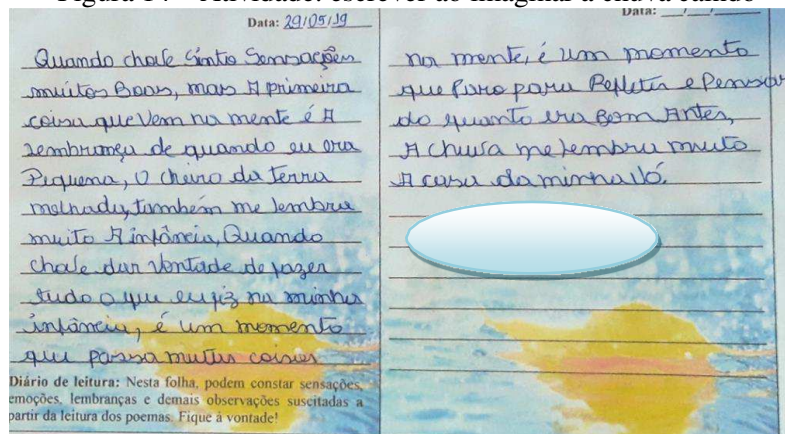 Figura 14 – Atividade: escrever ao imaginar a chuva caindo
Data: 29/05/19
Quando chove Sinto Sensações
muitos Boas, mas A primeira
coisa que Vem na mente é A
lembrança de quando eu era
Piquena, O cheiro da terra
molhada, também me lembra
muito A infância, Quando
chove dar Vontade de fazer
tudo o que eu fiz na minha
infância, é um momento
que passa muitas coisas
Diário de leitura: Nesta folha, podem constar sensações,
emoções, lembranças e demais observações suscitadas a
partir da leitura dos poemas. Fique à vontade!
Data: __/__/__
na mente, é um momento
que Paro para Refletir e Pensar
do quanto era Bom Antes,
A chuva me lembra muito
A casa da minha Vó.